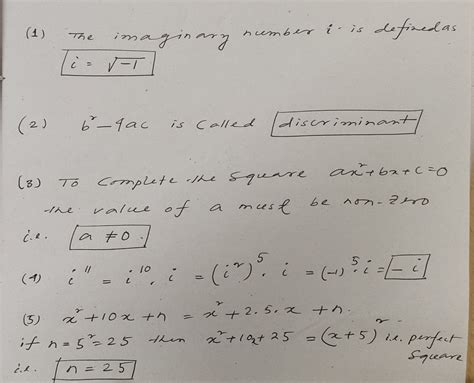 (1) The imaginary number i is defined as
i = √-1
(2) b² - 4ac is called discriminant
(3) To Complete the Square ax²+bx+c=0
the value of a must be non-zero
i.e. a ≠ 0.
(4) i¹¹ = i¹⁰. i = (i²)⁵. i = (-1)⁵. i = -i
(5) x²+10x+n = x²+2.5.x+n.
if n=5²=25 then x²+10x+25 = (x+5)² i.e. perfect
Square
i.e. n = 25